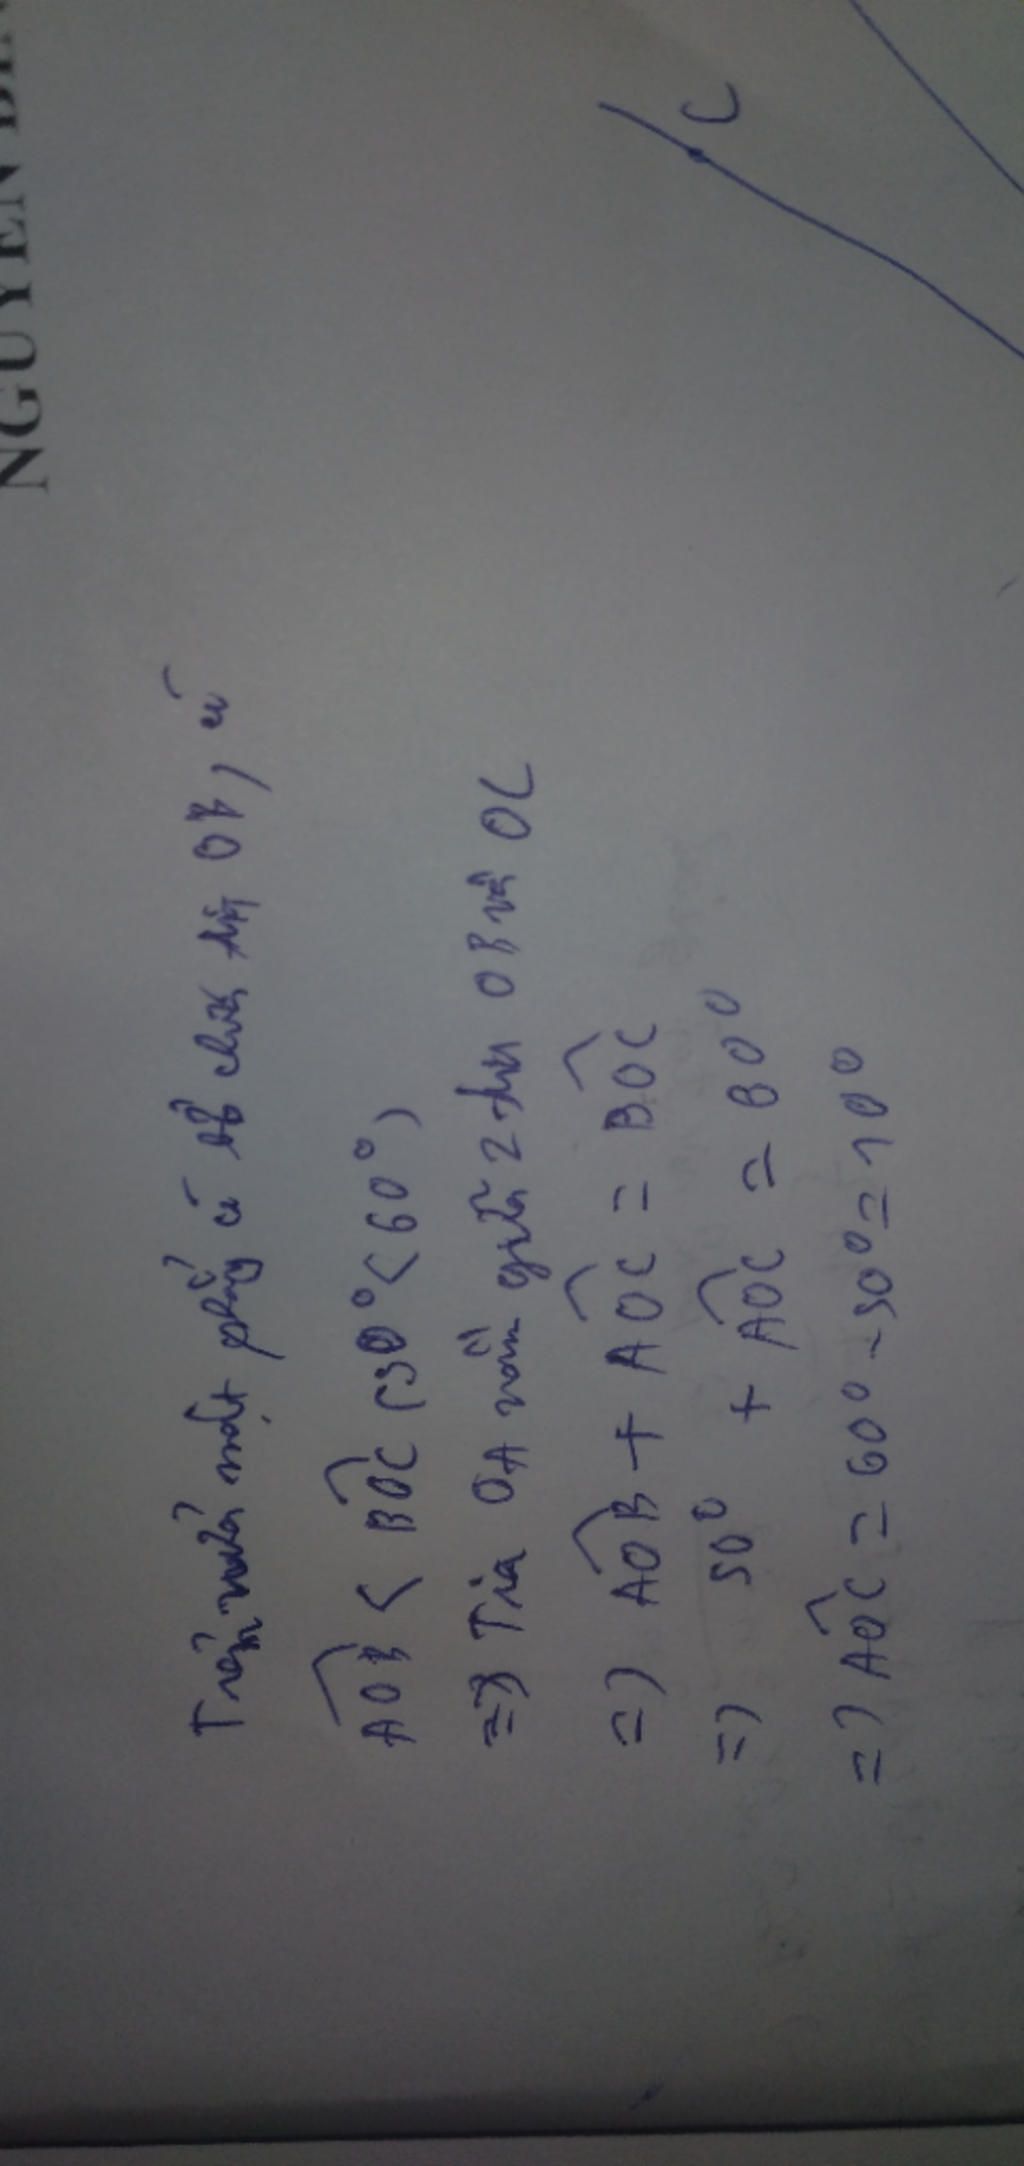 NGUYEN
Trên nửa mặt phẳng có bờ chứa tia OB, có
AOB < BOC (50° < 60°)
=> Tia OA nằm giữa 2 tia OB và OC
=> AOB + AOC = BOC
=> 50° + AOC = 60°
=> AOC = 60° - 50° = 10°
C